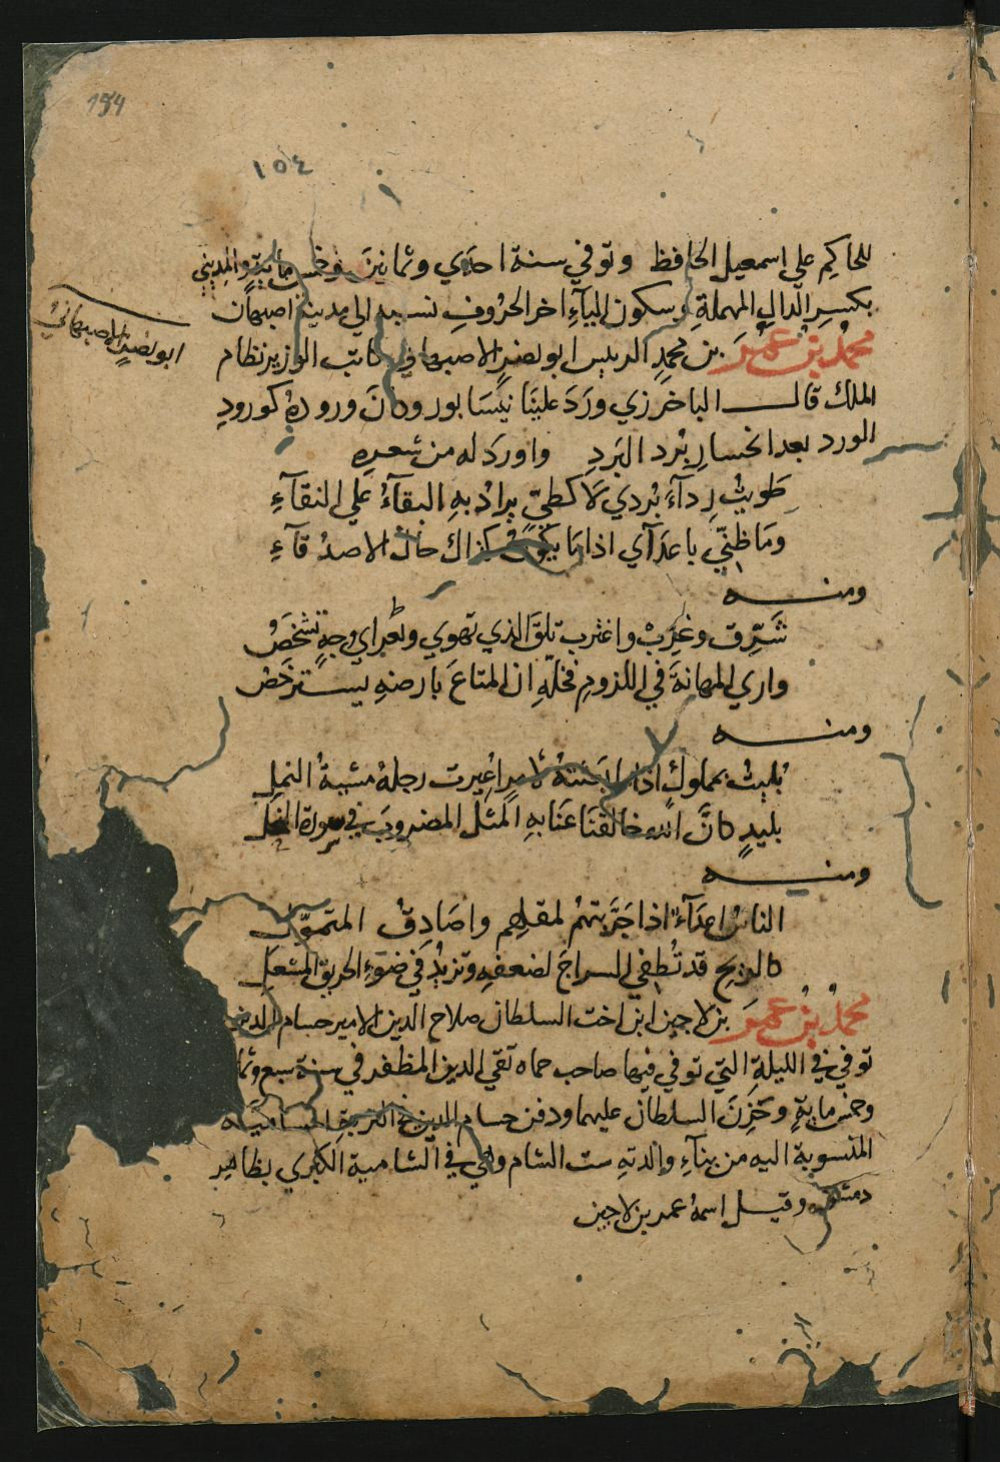 194
١٥٤
للحاكم علي اسمعيل الحافظ وتوفي سنة احدي وثمانين وخمس مايةٍ والمديني
بكسرِ الدالِ المهملةِ وسكون اليآءِ اخر الحرُوفِ نسبه الي مدينة اصبهان
ابو نصرٍ الاصبهانيُ
محمدُ بنُ عُمرَ بن محمدٍ الرييس ابو نصرٍ الاصبهاني كاتب الوزير نظام
الملك قال الباخرزي ورَدَ علينَا نيسَابور وكانَ ورودهُ كورودِ
الورد بعد انحسارِ بُرد البَردِ واوردَ له من شعرِهِ
طويتُ رِدآءَ بُردي لا كطيٍّ يرادُ بهِ البقآءُ علي النقآءِ
ومَا ظنّي باعدَآي اذا مَا يكون كذاك حال الاصدقآءِ
ومنه
شَرِّق وغَرِّبْ واغترب تلقَ الذي تهوي وتعز اي وجهٍ تشخَصُ
واري المهانةَ في اللزومِ فخلّهِ ان المتاعَ بارضهِ يسترخَصُ
ومنه
بُليتُ بمملوكٍ اذا ما بعثتهُ لامرٍ اعيرت رجلهُ مشيةُ النملِ
بليدٍ كانَّ الله خالقنَا عنَا بهِ المثل المضروبَ في سورة النحل
ومنه
الناسُ اعدَآءٌ اذا جَرَّبتهُم لمقلهِم واصَادِقُ المتموّل
كالريحِ قد تُطفي السراجَ لضعفهِ وتزيدُ في ضوءِ الحريق المشعَلِ
محمدُ بنُ عُمرَ بن لاجين ابن اخت السلطان صلاح الدين الامير حسام الدين
توفي في الليلةِ التي توفي فيها صاحب حماه تقي الدين المظفر في سنة سبع وثما
وخمس مايةٍ وحَزِنَ السلطان عليهما ودفن حسام الدين في التربةِ الحساميّه
المنسوبة اليه من بنآءِ والدتهِ ست الشام وهي في الشامية الكبري بظاهِر
دمشق وقيل اسمهُ عمر بن لاجين